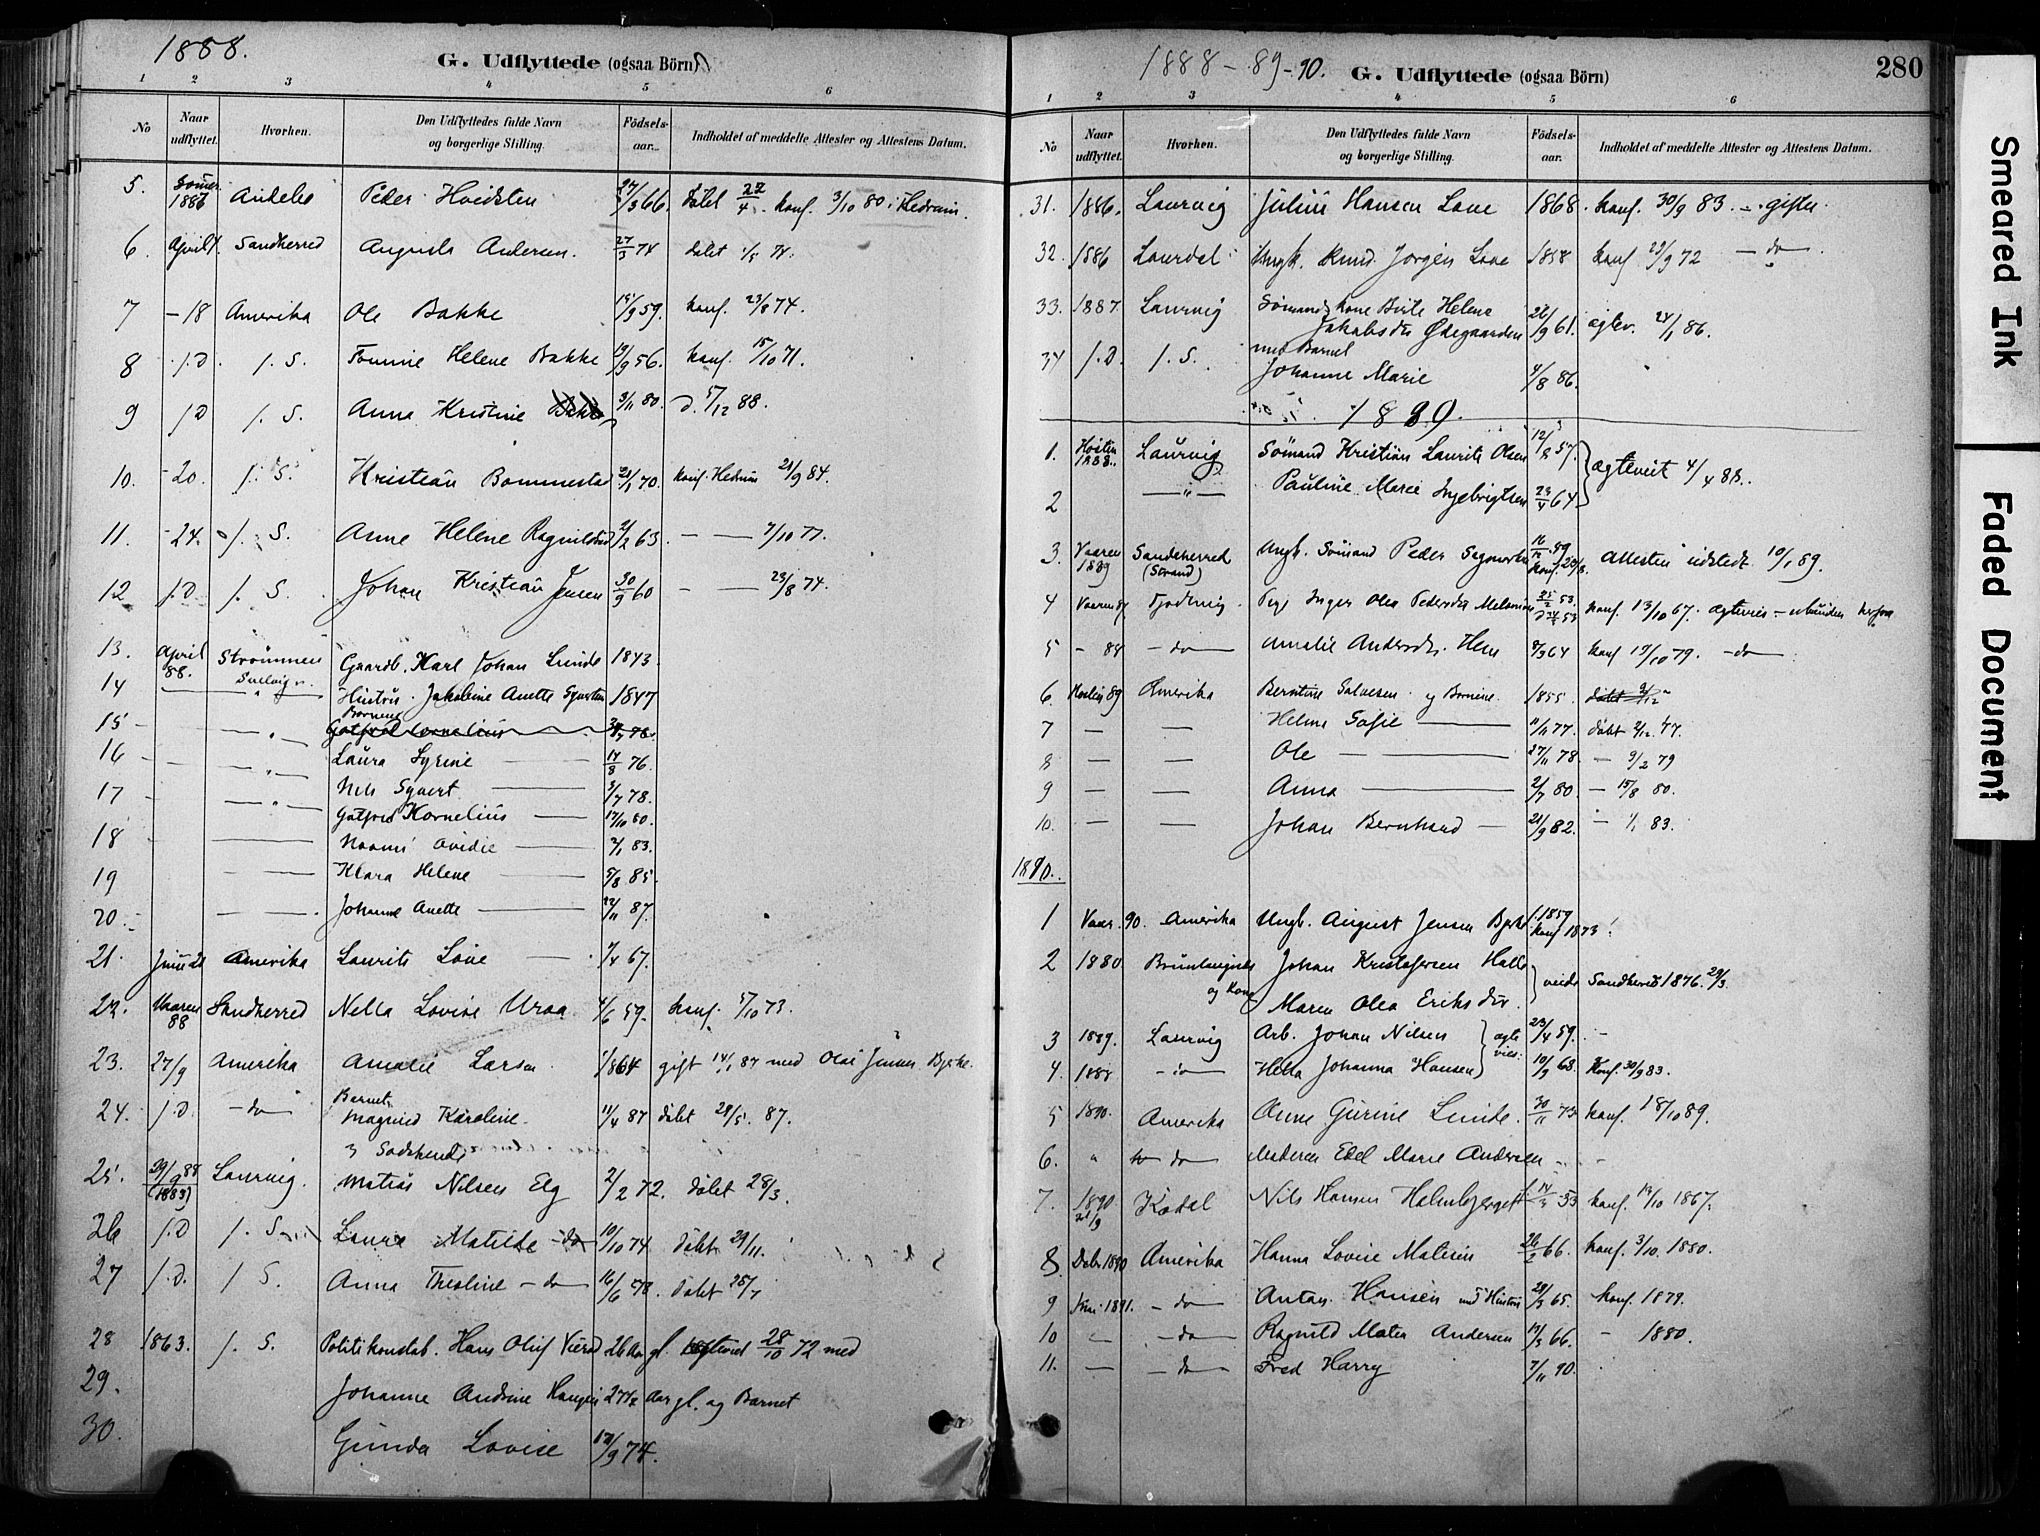 1888.
G. Udflyttede (ogsaa Börn)
1 2 3 4 5 6
No Naar udflyttet. Hvorhen. Den Udflyttedes fulde Navn og borgerlige Stilling. Födsels-aar. Indholdet af meddelte Attester og Attestens Datum.
5. 1886 Andebo Peder Hvidsten 27/3 66. Döbt 22/4. konf. 3/10 80 i Hedrum.
6. April. Sandherred Augusta Andersen. 27/3 74 döbt 1/5 74.
7 -18 Amerika Ole Bakke 59. konf. 23/8 74.
8 f.D. f. S. Helene Bakke 19/9 56. konf. 15/10 71.
9 f.D f. S. Anna Kristine 3/11 80. d. 5/12 88.
10. -20. f. S. Kristian Bommestad 70. konf. Hedrum 21/9 84.
11. -24. f. S. Anne Helene 2/2 63 — — 7/10 77.
12 f.D. f. S. Johan Kristian Jensen 30/9 60 — — 23/8 74.
13. April 88. Strömmen Gaardb. Karl Johan Lunde 1843
14 — " — Hustru Jakobine Anette 1847
Börnene
15 - — " — Gotfred Cornelius 78.
16 - — " — Laura Syrine — 17/8 76.
17 - — " — Nils Syvert — 3/7 78.
Gotfred Kornelius — 17/10 80.
18 — — Naomi Ovidie — 2/1 83.
19 — — Klara Helene — 5/8 85.
20 — — Johanne Anette — 22/11 87.
21. Juni 21 Amerika Laurits Löve — 7/4 67.
22. Vaaren 88 Sandherred Nella Lovise Uraa 4/6 59. konf. 5/10 73.
23. 27/9 Amerika Amalie Larsen 1/8 64 gift 14/1 87 med Olai Jensen
24. f.D. - do - Barnet Magnild Karoline. 11/4 87 döbt 28/5. 87.
25. 29/9 88 (1883) Laurvig. Matias Nilsen Elg 2/2 72. döbt 28/3.
26 f.D f. S. Laura Matilde - do - 10/10 74 döbt 29/11.
27 f.D. f. S. Anna Thestine - do - 16/6 78. döbt 25/7
28 1863. f. S. Politikonstab. Hans Oluf 26 Aar gl. ægteviet 28/10 72 med
29. Johanne Andrine 27 1/2 Aar gl. og Barnet
30. Gunda Lovise 12/9 74.
1888 - 89 - 90. G. Udflyttede (ogsaa Börn) 280
1 2 3 4 5 6
No Naar udflyttet. Hvorhen. Den Udflyttedes fulde Navn og borgerlige Stilling. Födsels-aar. Indholdet af meddelte Attester og Attestens Datum.
31. 1886. Laurvig Julius Hansen Løve 1868. konf. 30/9 83. — gifter.
32. 1886 Laurdal Ungk. Knud Jørgen Løve 1858 konf 29/9 72 — do —
33. 1887. Laurvig Sømands kone Birte Helene Jakobsdtr Ødegaarden 22/9 61. ægtev. 24/1 86.
34 f.D. f. S. med Barnet Johanne Marie 4/8 86.
1889.
1. Høsten 1888. Laurvig Sömand Kristian Laurits Olsen 12/8 57. ægteviet 4/4 88.
2 — " — Pauline Marie Ingebrigtsen 23/4 64
3. Vaaren 1889 Sandeherred (Strand) Ungk. Sömand Peder Attesten udstedt 10/1 89.
4 Vaaren 89 Inger Olea Pedersdtr 25/2 53. konf. 13/10 67. ægtevies
5 - 89 - do - Amalie Andersdtr. Hem 64 konf 19/10 79. - do -
6. Høsten 89 Amerika Berntine Salvesen og Børnene 1855. döbt 2/12
7 — — Helma Sofie — 11/11 77. döbt 2/12 77.
8 — — Ole — 27/11 78. — 9/2 79
9 — — Anna — 2/7 80 — 15/8 80.
10. — — Johan Bernhard — 21/9 82. — 1/1 83.
1890.
1 Vaar. 90. Amerika Ungk. August Jensen f. 1859 konf 1873
2 1880 Brunlangnæs og Kone Johan Kristofersen Halle viede Sandherred 1876. 29/3.
Maren Olea Eriksdtr.
3 1889. Laurvig Arb. Johan Nilsen ægtevies. 23/4 59. -
4. 1888 - do - Hella Johanna Hansen 10/9 68. Konf. 30/9 83.
5 1890. Amerika Anne Gurine Lunde. 30/11 73 konf. 18/10 89.
6. " - do - Maren Edel Marie Andersen - -
7. 1890 21/9 Kodal Nils Hansen f. 14/3 53 konf. 13/10 1867.
8. Debr 1890 Amerika Hanna Lovise 26/2 66. konf. 3/10. 1880.
9 1891. - do - Anton Hansen med Hustru 28/3 65. konf. 1879.
10 — - do - Ragnild Matea Andersen 17/3 66. — 1880.
11. — - do - Fred Harry 7/11 90.
Smeared Ink
Faded Document